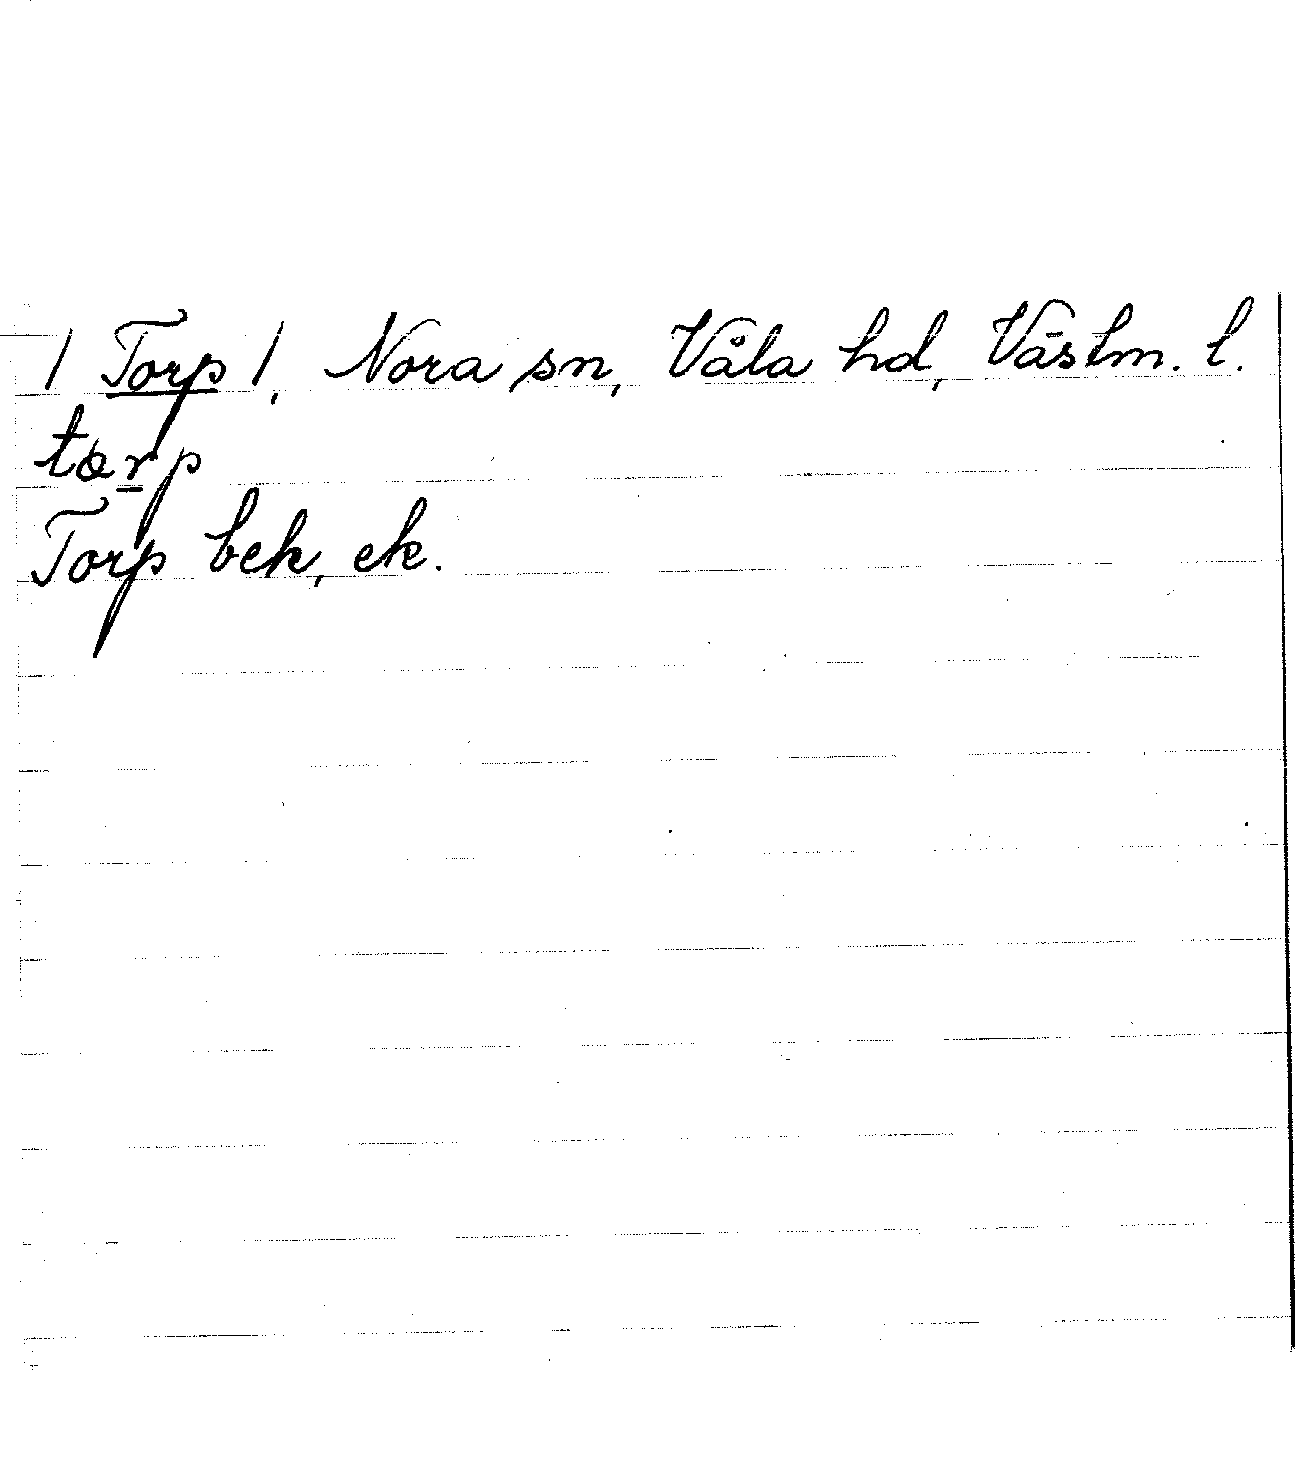 / Torp /, Nora sn, Våla hd, Västm. l.
tɷrp
Torp bek, ek.